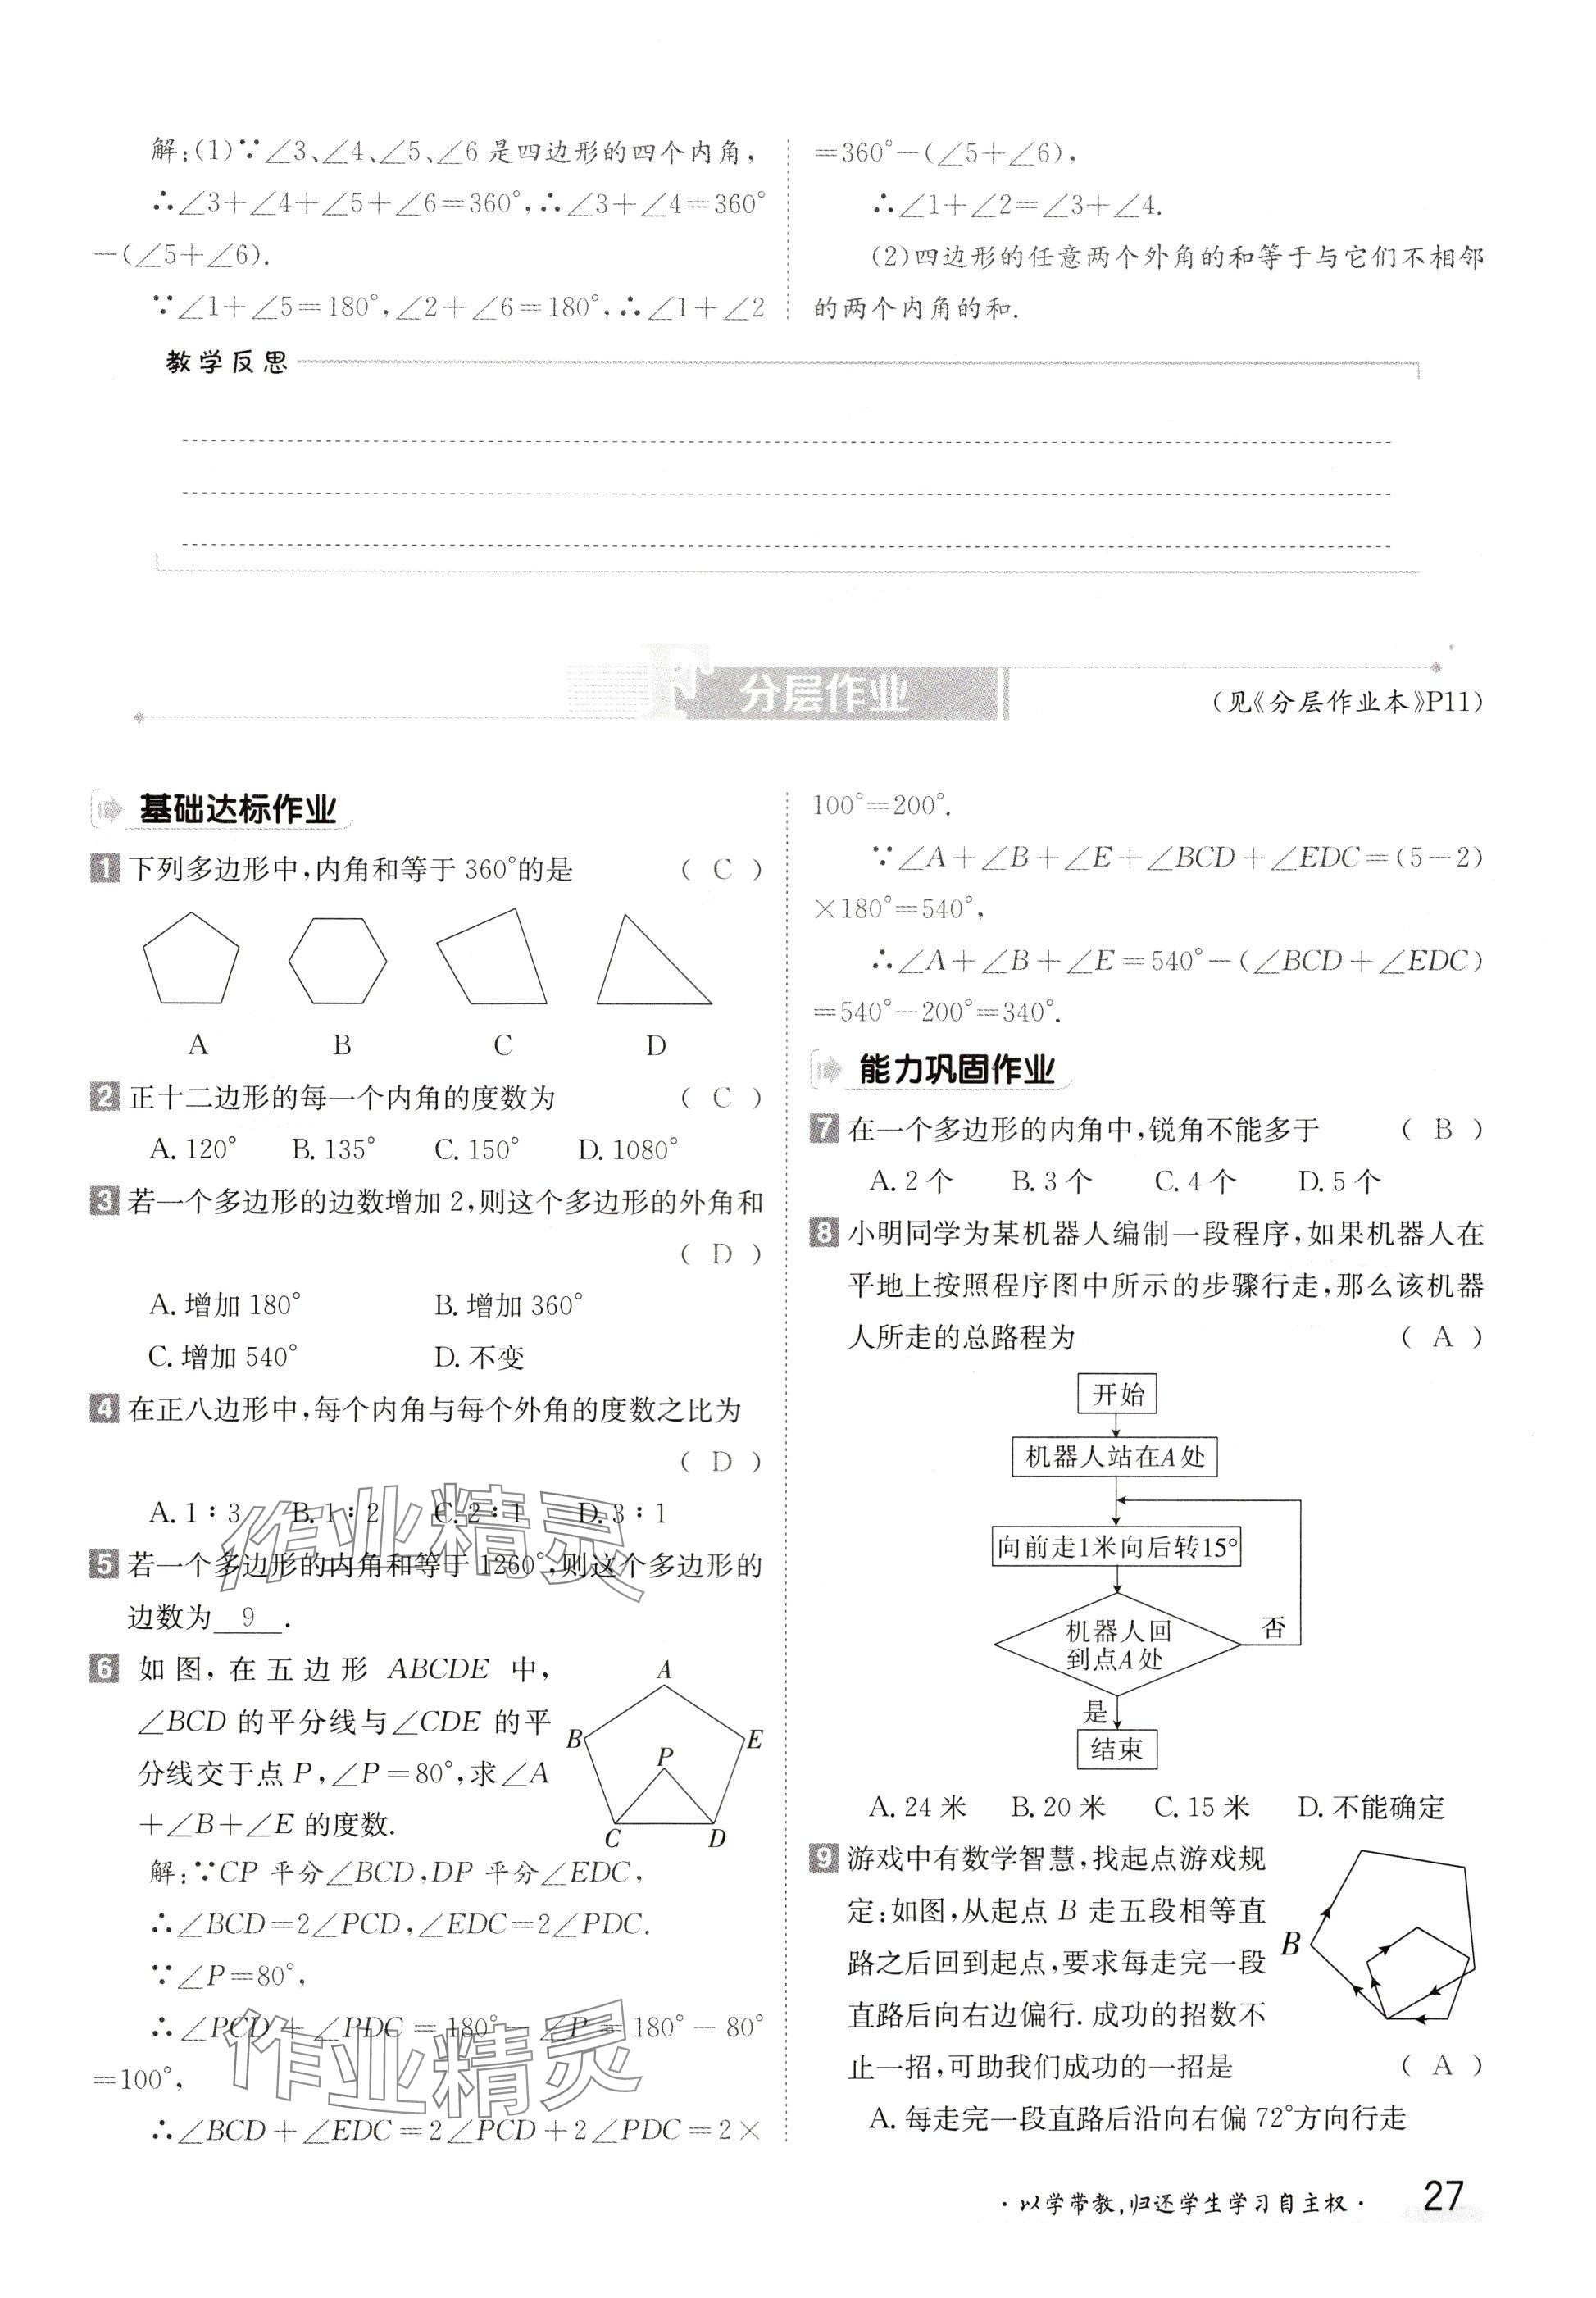 解:(1)∵∠3、∠4、∠5、∠6是四边形的四个内角,
∴∠3+∠4+∠5+∠6=360°,∴∠3+∠4=360°
-(∠5+∠6).
∵∠1+∠5=180°,∠2+∠6=180°,∴∠1+∠2
=360°-(∠5+∠6),
∴∠1+∠2=∠3+∠4.
(2)四边形的任意两个外角的和等于与它们不相邻
的两个内角的和.
教学反思
分层作业
(见《分层作业本》P11)
基础达标作业
1 下列多边形中,内角和等于360°的是 ( C )
A B C D
2 正十二边形的每一个内角的度数为 ( C )
A. 120° B. 135° C. 150° D. 1080°
3 若一个多边形的边数增加2,则这个多边形的外角和
( D )
A. 增加180° B. 增加360°
C. 增加540° D. 不变
4 在正八边形中,每个内角与每个外角的度数之比为
( D )
A. 1∶3 B. 1∶2 C. 2∶1 D. 3∶1
5 若一个多边形的内角和等于1260°,则这个多边形的
边数为 9 .
6 如图,在五边形ABCDE中,
∠BCD的平分线与∠CDE的平
分线交于点P,∠P=80°,求∠A
+∠B+∠E的度数.
A
B
E
P
C
D
解:∵CP平分∠BCD,DP平分∠EDC,
∴∠BCD=2∠PCD,∠EDC=2∠PDC.
∵∠P=80°,
∴∠PCD+∠PDC=180°-∠P=180°-80°
=100°,
∴∠BCD+∠EDC=2∠PCD+2∠PDC=2×
作业精灵
作业精灵
100°=200°.
∵∠A+∠B+∠E+∠BCD+∠EDC=(5-2)
×180°=540°,
∴∠A+∠B+∠E=540°-(∠BCD+∠EDC)
=540°-200°=340°.
能力巩固作业
7 在一个多边形的内角中,锐角不能多于 ( B )
A. 2个 B. 3个 C. 4个 D. 5个
8 小明同学为某机器人编制一段程序,如果机器人在
平地上按照程序图中所示的步骤行走,那么该机器
人所走的总路程为 ( A )
开始
机器人站在A处
向前走1米向后转15°
机器人回
到点A处
否
是
结束
A. 24米 B. 20米 C. 15米 D. 不能确定
9 游戏中有数学智慧,找起点游戏规
定:如图,从起点B走五段相等直
路之后回到起点,要求每走完一段
直路后向右边偏行.成功的招数不
止一招,可助我们成功的一招是 ( A )
B
A. 每走完一段直路后沿向右偏72°方向行走
·以学带教,归还学生学习自主权·
27